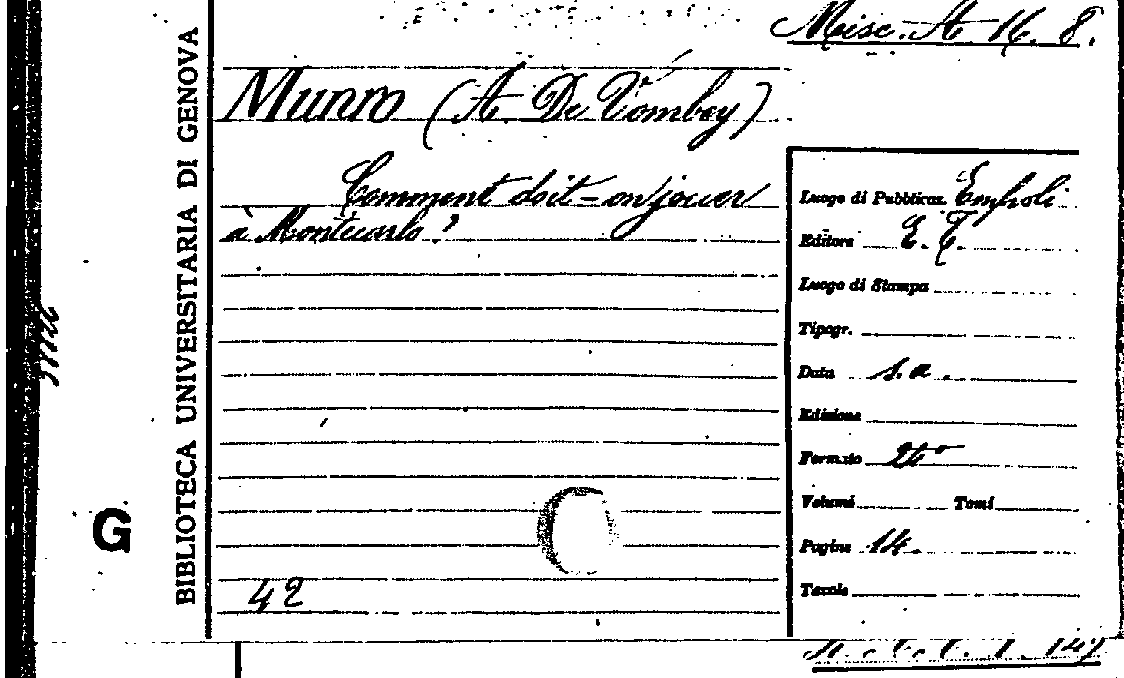 Misc. A 16. 8.
Munro (A. De Vombey)
Comment doit-on jouer
à Montecarlo?
Luogo di Pubblicaz. Empoli
Editore E. T.
Luogo di Stampa
Tipogr.
Data s. a.
Edizione
Formato
Volumi Tomi
Pagine 14.
Tavole
42
BIBLIOTECA UNIVERSITARIA DI GENOVA
G